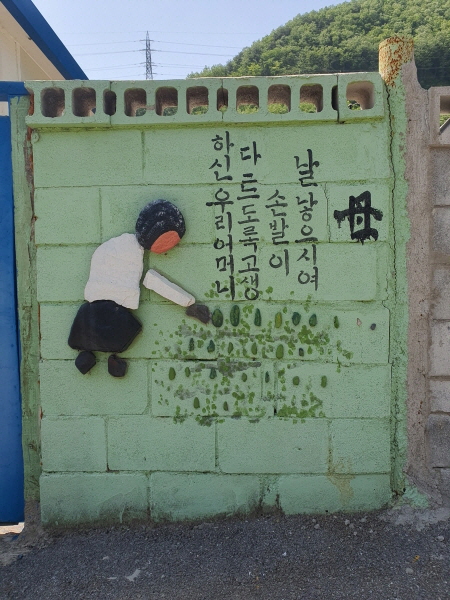 母
날 낳으시여
손발이
다 드도록 고생
하신 우리어머니